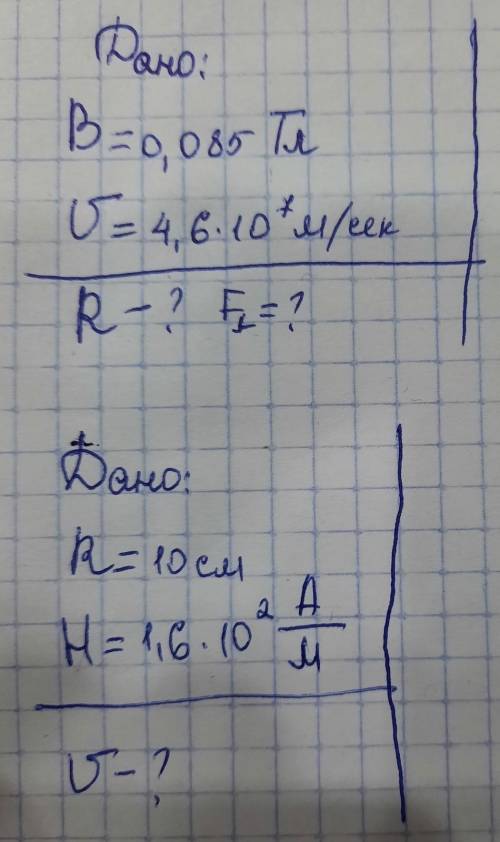 Дано:
B = 0,085 Тл
υ = 4,6·10⁷ м/сек
R – ? F_L = ?
Дано:
R = 10 см
H = 1,6·10² А/м
υ – ?